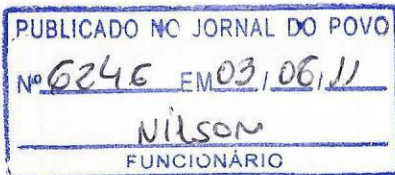 PUBLICADO NO JORNAL DO POVO
Nº 6246 EM 03, 06, 11
Nilson
FUNCIONÁRIO